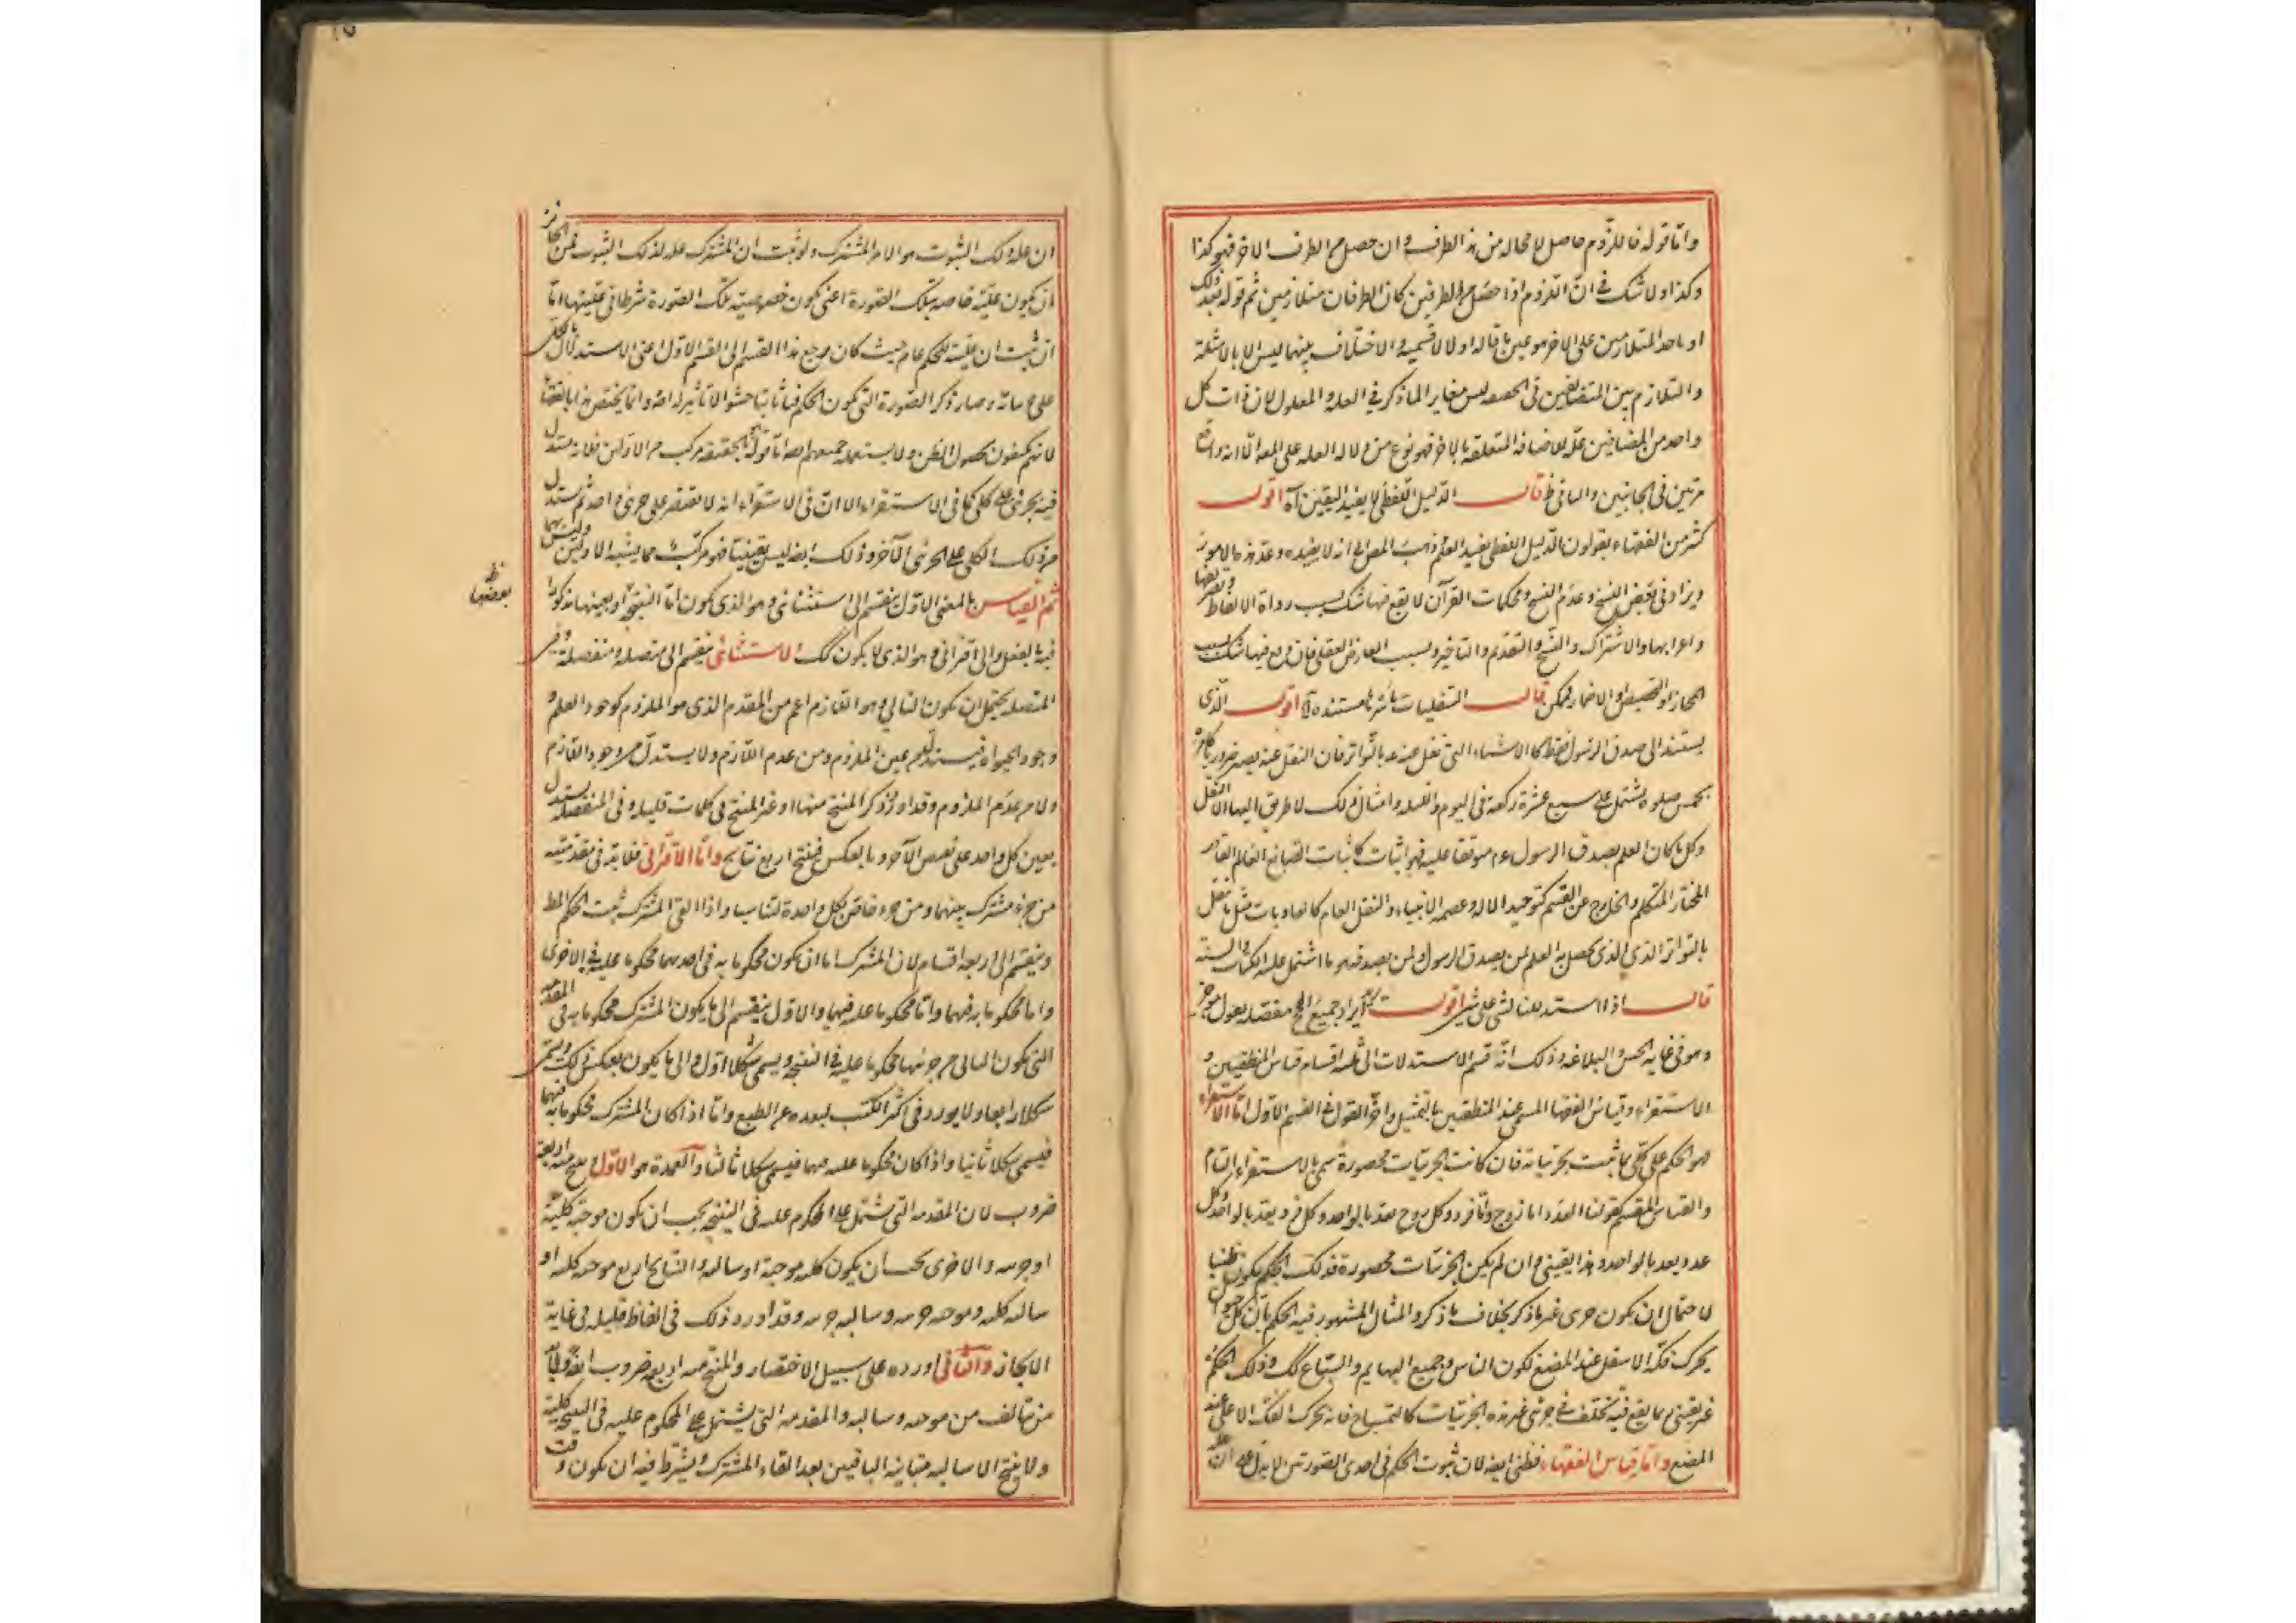 واما قوله فاللزوم حاصل لا محاله من هذا الطرف وان حصل من الطرف الاخر فهو كذا
وكذا ولا شك فى ان اللزوم اذا حصل من الطرفين كان الطرفان متلازمين ثم قوله بعد ذلك
او باحد المتلازمين على الاخر هو عين ما قاله اولا لا قسيمه والاختلاف بينهما ليس الا بالامثلة
والتلازم بين المتضايفين فى الحقيقه ليس مغاير الما ذكر فى العله والمعلول لان ذات كل
واحد من المضافين علة للاضافه المتعلقه بالاخر فهو نوع من دلاله العله على المعلول الا انه واقع
مرتين فى الجانبين والباقى ظ قال الدليل اللفظى لا يفيد اليقين آه اقول
كثير من الفقهاء يقولون الدليل اللفظى يفيد العلم وذهب المصر الى انه لا يفيده وعد هذه الامور
ويزاد فى بعض النسخ وعدم النسخ ومحكمات القرآن لا يقع فيها شك بسبب رواة الالفاظ وتصريفها
واعرابها والاشتراك والنسخ والتقديم والتاخير وبسبب المعارض العقلى فان وقع فيها شك بسبب
المجاز او التخصيص او الاضمار فممكن قال النقليات باسرها مستندة آه اقول الذى
يستند الى صدق الرسول فقط كالاشياء التى نقل عنه بالتواتر فان النقل عنه يصير ضروريا كامره
بخمس صلوة يشتمل على سبع عشرة ركعة فى اليوم والليله وامثال ذلك لا طريق اليها الا النقل
وكل ما كان العلم بصدق الرسول ع م موقفا عليه فهو اثبات كاثبات الصانع العالم القادر
المختار المتكلم والخارج عن القسم كتوحيد الاله وعصمه الانبياء والنقل العام كالعاديات مثل ما نقل
بالتواتر الذى الذى يحصل به العلم لمن يصدق الرسول ولمن يصدقه وما اشتمل عليه الكتاب والسنة
قال اذا استدللنا بشى على شى اقول ايراد جميع الحج مفصله بقول موجز
وهو فى غايه الحسن والبلاغه وذلك انه قسم الاستدلات الى ثلثه اقسام قياس المنطقيين و
الاستقراء وقياس الفقها المسمى عند المنطقيين بالتمثيل واخر القول فى القسم الاول اما الاستقراء
فهو الحكم على كلى بما ثبت لجزئياته فان كانت الجزئيات محصورة سمى بالاستقراء التام
والقياس المقسم كقولنا العدد اما زوج واما فرد وكل زوج يعد بالواحد وكل فرد يعد بالواحد فكل
عدد يعد بالواحد وهذا يقينى وان لم يكن الجزئيات محصورة فذلك الحكم يكون ظنيا
لاحتمال ان يكون جزى غير ما ذكر بخلاف ما ذكر والمثال المشهور فيه الحكم بان كل حيوان
يحرك فكه الاسفل عند المضغ لكون الناس وجميع البهايم والسباع كك وذلك الحكم
غير يقينى بما يقع فيه تخلف فى جزئى غير هذه الجزئيات كالتمساح فانه يحرك الفك الاعلى عند
المضغ واما قياس الفقهاء فظنى ايضا لان ثبوت الحكم فى احدى الصورتين لا يدل على ان
ان عله ذلك الثبوت هو الامر المشترك ولو ثبت ان المشترك عله لذلك الثبوت فمن الجائز
ان يكون علية خاصه بتلك الصورة اعنى يكون خصوصيته تلك الصورة شرطا فى عليتها اما
ان ثبت ان عليته للحكم عام حيث كان رجع هذا القسم الى القسم الاول اعنى الاستدلال بالكلى
على جزئياته وصار ذكر الصورة التى يكون الحكم فيها ثابتا حشوا لا تاثير له اصلا وانما يختص هذا بالفقهاء
لانهم يكتفون بحصول الظن ولا يستعمله جميعهم ايضا اما قوله بالحقيقه مركب من الاولين فلانه يستدل
فيه بجزئى على كلى كما فى الاستقراء الا ان فى الاستقراء انه لا يقتصر على جزئى واحد ثم يستدل
من ذلك الكلى على الجزئى الآخر وذلك ايضا ليس يقينيا فهو مركب مما يشبه الاولين وليس بهما
ثم القياس بالمعنى الاول ينقسم الى استثنائى وهو الذى يكون اما النتيجة او نقيضها مذكورا
ظ
نقيضها
فيه بالفعل والى اقترانى وهو الذى لا يكون كك الاستثنائى ينقسم الى متصلة ومنفصلة وفى
المتصله يحتمل ان يكون التالى وهو اللازم اعم من المقدم الذى هو الملزوم كوجود العلم و
وجود الحيواة فيستدل من عين الملزوم ومن عدم اللازم ولا يستدل من وجود اللازم
ولا من عدم الملزوم وقد اورد ذكر المنتج منها او غير المنتج فى كلمات قليله وفى المنفصله يستدل
بعين كل واحد على نقيض الآخر وبالعكس فينتج اربع نتايج واما الاقترانى فلا بد فى مقدمتيه
من جزء مشترك بينهما ومن جزء خاص بكل واحدة لتناسب واذا القى المشترك ثبت الحكم المط
وينقسم الى اربعة اقسام لان المشترك اما ان يكون محكوما به فى احديهما محكوما عليه فى الاخرى
واما محكوما به فيهما واما محكوما عليه فيهما والاول ينقسم الى ما يكون المشترك محكوما به فى المقدمه
التى يكون التالى من جزئيها محكوما عليه فى النتيجه ويسمى شكلا اول والى ما يكون بعكس ذلك ويسمى
شكلا رابعا ولا يورد فى اكثر الكتب لبعده عن الطبع واما اذا كان المشترك محكوما به فيهما
فيسمى شكلا ثانيا واذا كان محكوما عليه فيهما فيسمى شكلا ثالثا والعمدة هو الاول ينتج منه اربعة
ضروب لان المقدمه التى يشتمل على المحكوم عليه فى النتيجه يجب ان يكون موجبة كلية
او جزئيه والاخرى يجب ان يكون كليه موجبة او سالبه والنتايج اربع موجبه كليه او
سالبه كليه وموجبه جزئيه وسالبه جزئيه وقد اورد ذلك فى الفاظ قليله فى غاية
الايجاز والثانى اورده على سبيل الاختصار والمنتج منه اربعه ضروب ايضا ولابد
من تالف من موجبه وسالبه والمقدمه التى يشتمل على المحكوم عليه فى النتيجه كلية
ولا ينتج الا سالبه مباينه الباقيين بعد القاء المشترك ويشترط فيه ان يكون وقت